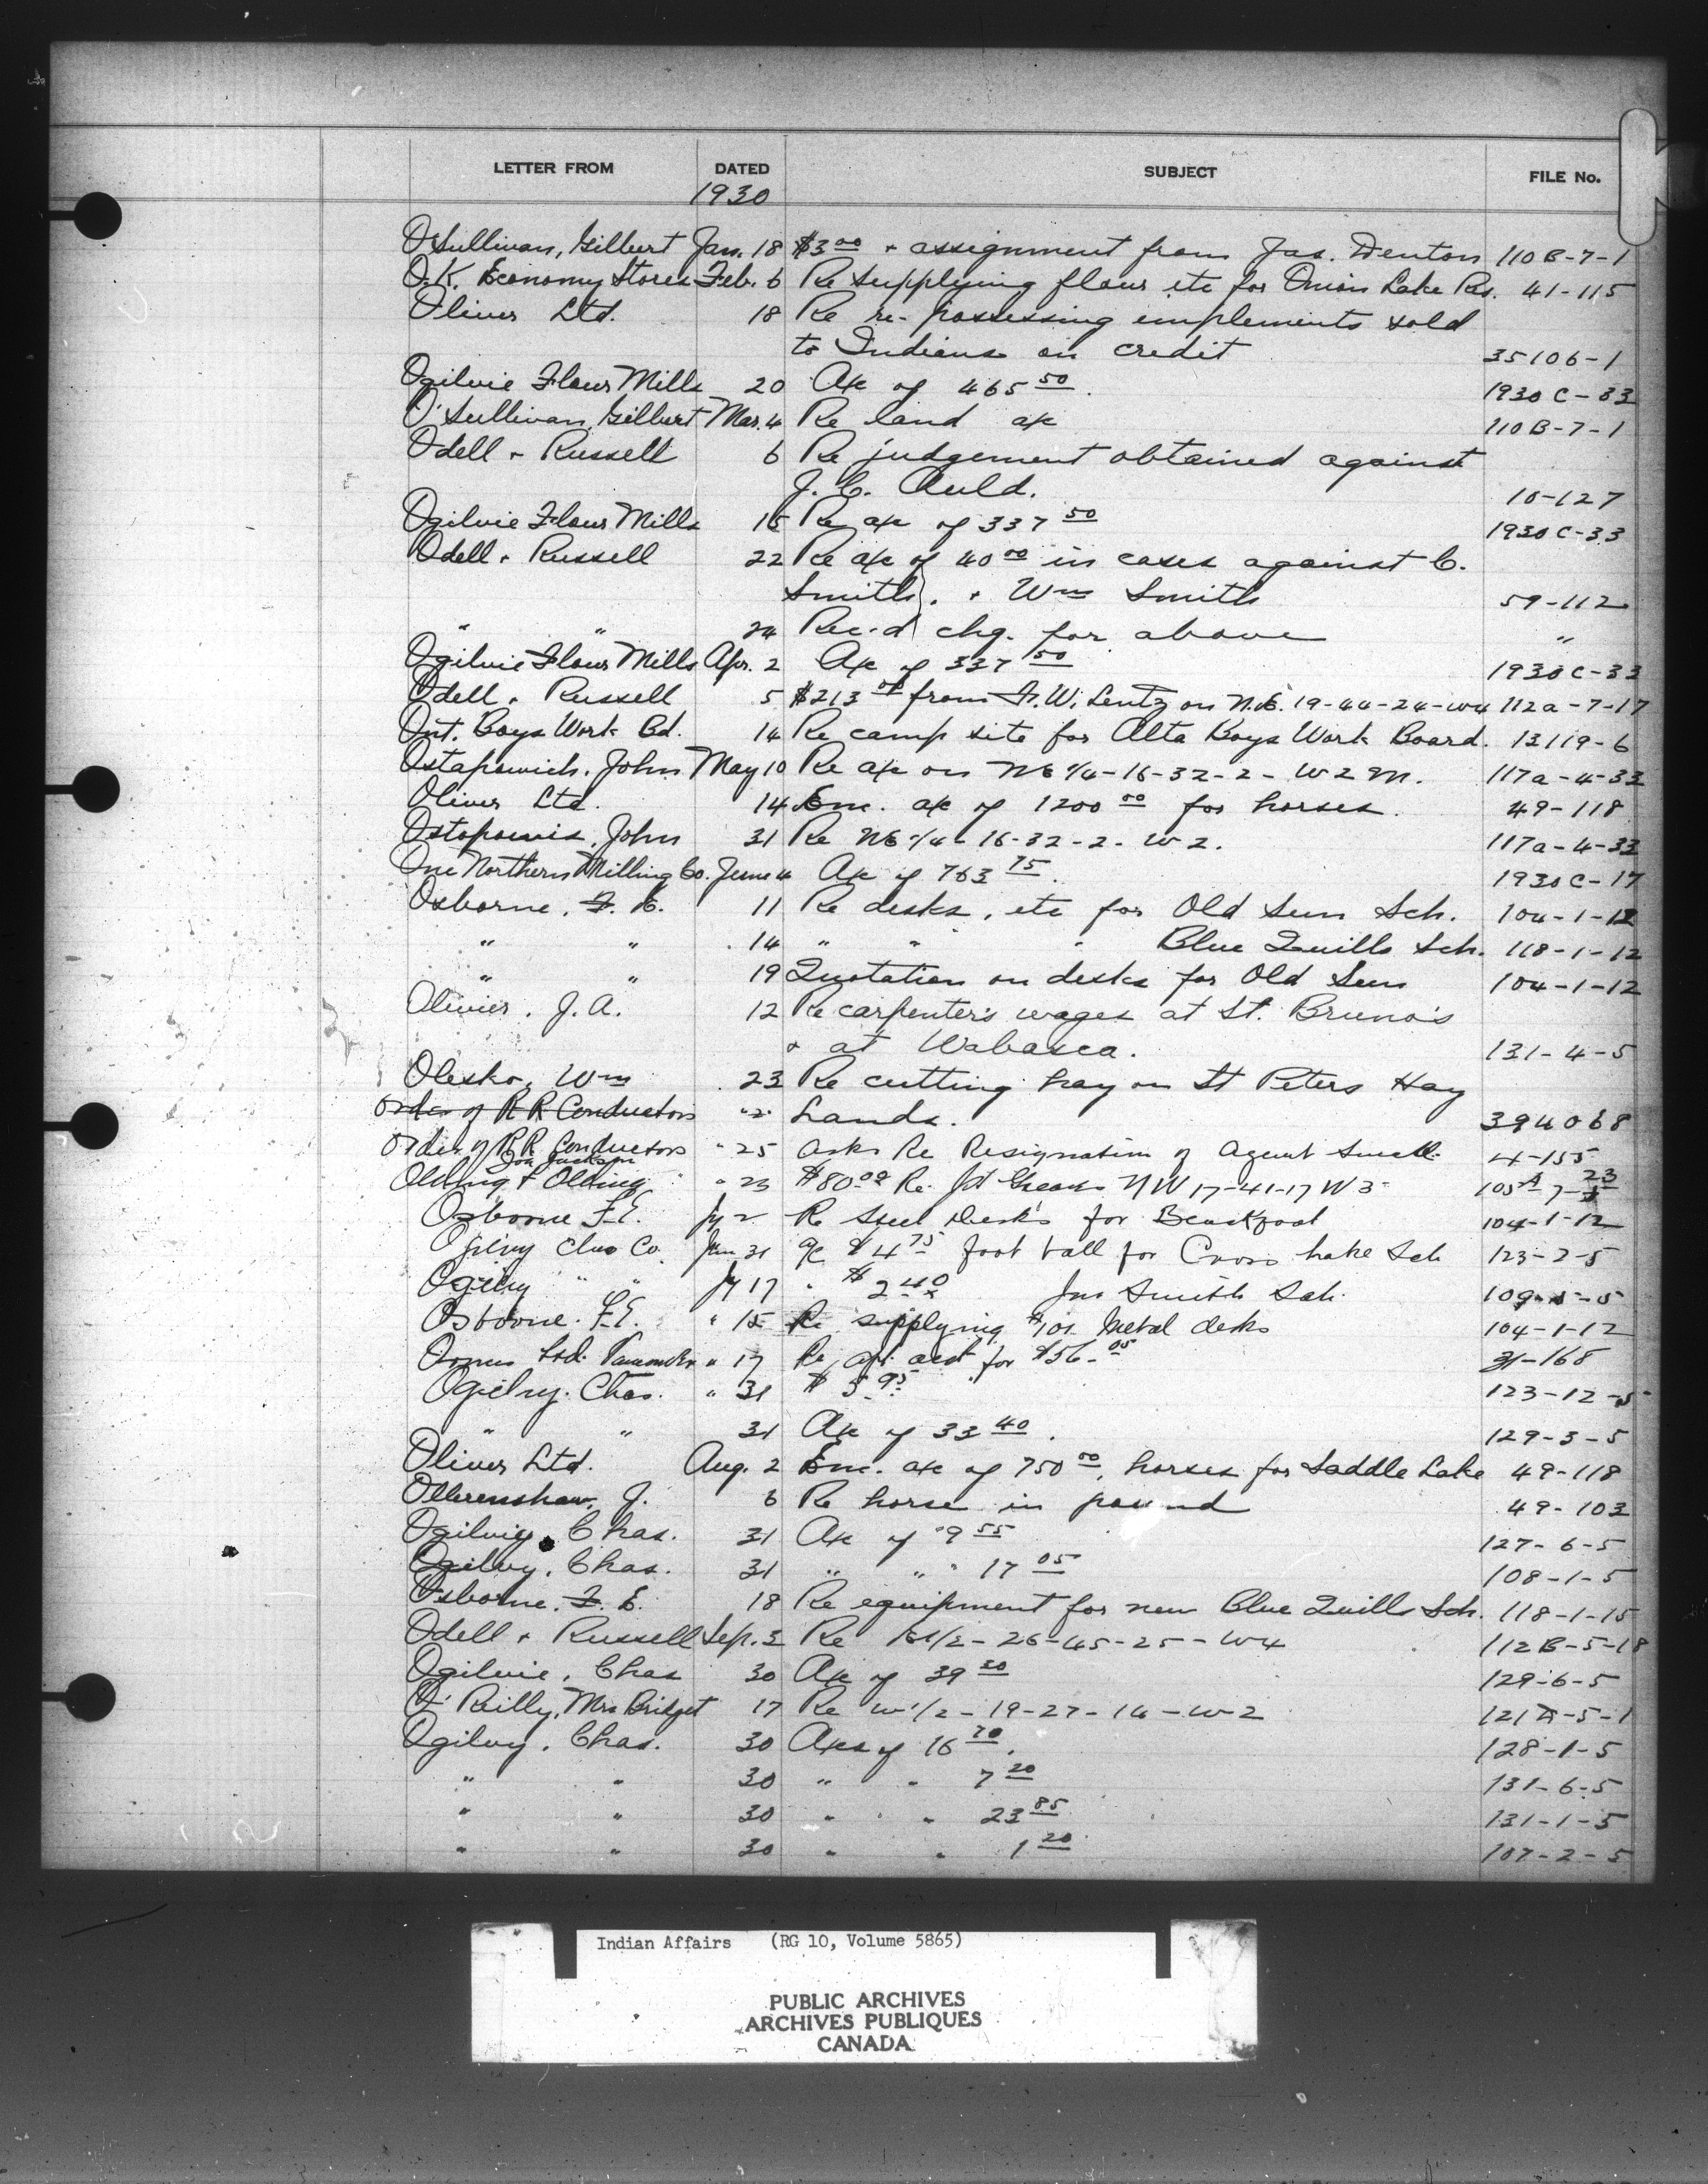 LETTER FROM DATED SUBJECT FILE No.
1930
O'Sullivan, Gilbert Jan. 18 $3 00 + assignment from Jas. Denton 110B-7-1
O.K. Economy Stores Feb. 6 Re supplying flour etc for Onion Lake Res. 41-115
Oliver Ltd. 18 Re re-possessing implements sold
to Indians on credit 35106-1
Ogilvie Flour Mills 20 A/c of 465 50. 1930 C-33
O'Sullivan, Gilbert Mar. 4 Re land a/c 110B-7-1
Odell + Russell 6 Re judgement obtained against
J. C. Auld. 10-127
Ogilvie Flour Mills 15 Re a/c of 337 50 1930 C-33
Odell + Russell 22 Re a/c of 40 00 in cases against C.
Smith, + Wm Smith 59-112
" " 24 Rec'd chq. for above "
Ogilvie Flour Mills Apr. 2 A/c of 337 50 1930 C-33
Odell + Russell 5 $213 from F. W. Lentz on N.E. 19-44-24-W4 112a-7-17
Ont. Boys Work Bd. 14 Re camp site for Alta Boys Work Board. 13119-6
Ostapowich, John May 10 Re a/c on NE 1/4-16-32-2-W2M. 117a-4-33
Oliver Ltd. 14 Enc. a/c of 1200 00 for horses. 49-118
Ostapowis, John 31 Re NE 1/4-16-32-2-W2. 117a-4-33
One Northern Milling Co. June 4 A/c of 763 75. 1930 C-17
Osborne, F. E. 11 Re desks, etc for Old Sun Sch. 104-1-12
" " 14 " " " Blue Quills Sch. 118-1-12
" " 19 Quotation on desks for Old Sun 104-1-12
Olivier, J. A. 12 Re carpenter's wages at St. Bruno's
+ at Wabasca. 131-4-5
Olesko, Wm 23 Re cutting hay on St Peters Hay
Order of R R Conductors Lands. 394068
Order of R R Conductors " 25 asks Re Resignation of Agent 4-155
Olding + Olding " 23 $80.00 Re. NW 17-41-17 W3 105A-7-23
Osborne F.E. Jy 2 Re Steel Desks for 104-1-12
Ogilvy Chas Co. Jun 31 a/c $4 75 foot ball for Cross Lake Sch 123-2-5
Ogilvy " " Jy 17 " $2 40 Jno Smith Sch. 109-5-5
Osborne. F.E. " 15 Re supplying 101 Metal desks 104-1-12
Ltd. " 17 Re acct for $56.05
31-168
Ogilvy. Chas. " 31 $5.95 123-12-5
" " 31 A/c of 33 40. 129-3-5
Oliver Ltd. Aug. 2 Enc. a/c of 750 00, horses for Saddle Lake 49-118
Ollerenshaw, J. 6 Re horse in pound 49-103
Ogilvie, Chas. 31 A/c of 9 55 127-6-5
Ogilvy, Chas. 31 " " " 17 05 108-1-5
Osborne, F. E. 18 Re equipment for new Blue Quills Sch. 118-1-15
Odell + Russell Sep. 3 Re E1/2-26-45-25-W4 112B-5-18
Ogilvie, Chas 30 A/c of 39 30 129-6-5
O'Reilly, Mrs Bridget 17 Re W1/2-19-27-14-W2 121A-5-1
Ogilvy, Chas. 30 A/cs of 16 70. 128-1-5
" " 30 " " 7 20 131-6-5
" " 30 " " 23 85 131-1-5
" " 30 " " 1 20 107-2-5
Indian Affairs (RG 10, Volume 5865)
PUBLIC ARCHIVES
ARCHIVES PUBLIQUES
CANADA